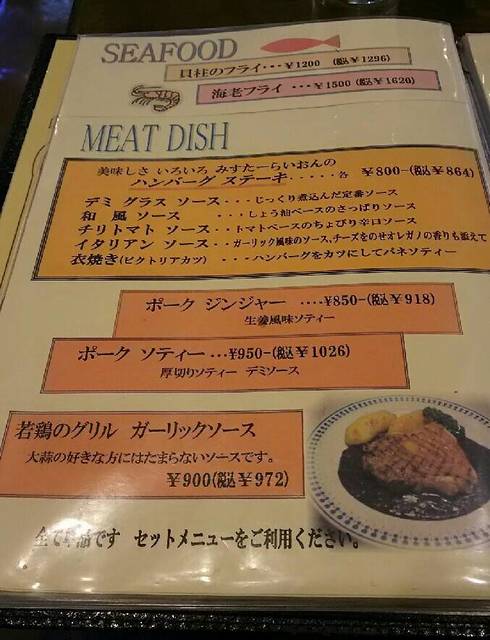 SEAFOOD
貝柱のフライ・・・￥1200 (税込￥1296)
海老フライ ・・・￥1500 (税込￥1620)
MEAT DISH
美味しさ いろいろ みすたーらいおんの
ハンバーグ ステーキ・・・・・各 ￥800-(税込￥864)
デミ グラス ソース・・・じっくり煮込んだ定番ソース
和 風 ソース ・・・しょう油ベースのさっぱりソース
チリトマト ソース・・トマトベースのちょぴり辛口ソース
イタリアン ソース・・ガーリック風味のソース、チーズをのせオレガノの香りも添えて
衣焼き(ビクトリアカツ) ・・・ハンバーグをカツにしてパネソティー
ポーク ジンジャー ....¥850-(税込￥918)
生姜風味ソティー
ポーク ソティー...¥950-(税込￥1026)
厚切りソティー デミソース
若鶏のグリル ガーリックソース
大蒜の好きな方にはたまらないソースです。
￥900(税込￥972)
全て単品です セットメニューをご利用ください。